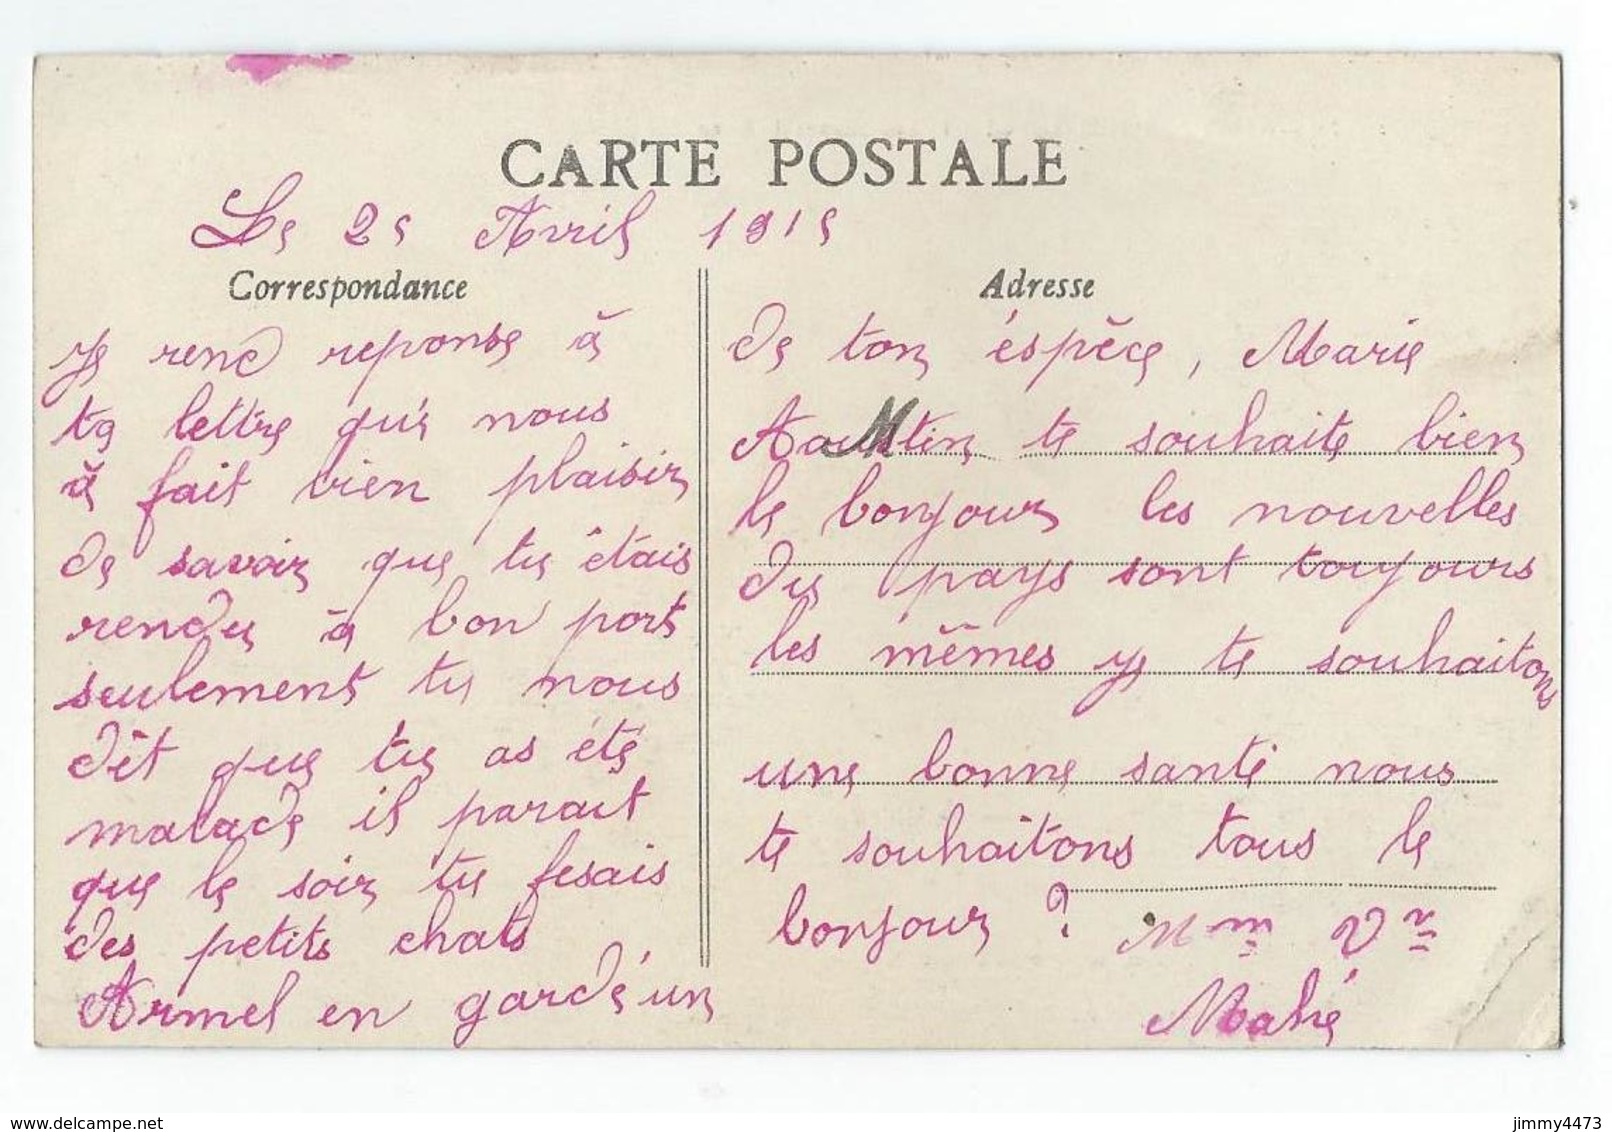 CARTE POSTALE
Le 25 Avril 1915
Correspondance
je rend reponse à
ta lettre qui nous
à fait bien plaisir
de savoir que tu étais
rendu à bon port
seulement tu nous
dit que tu as été
malade il parait
que le soir tu fesais
des petits chats
Armel en gardé un
Adresse
de ton éspèce, Marie
te souhaite bien
le bonjour les nouvelles
du pays sont toujours
les mêmes je te souhaitons
une bonne santé nous
te souhaitons tous le
bonjour ? Mme Vve
Mahé
www.delcampe.net
jimmy4473